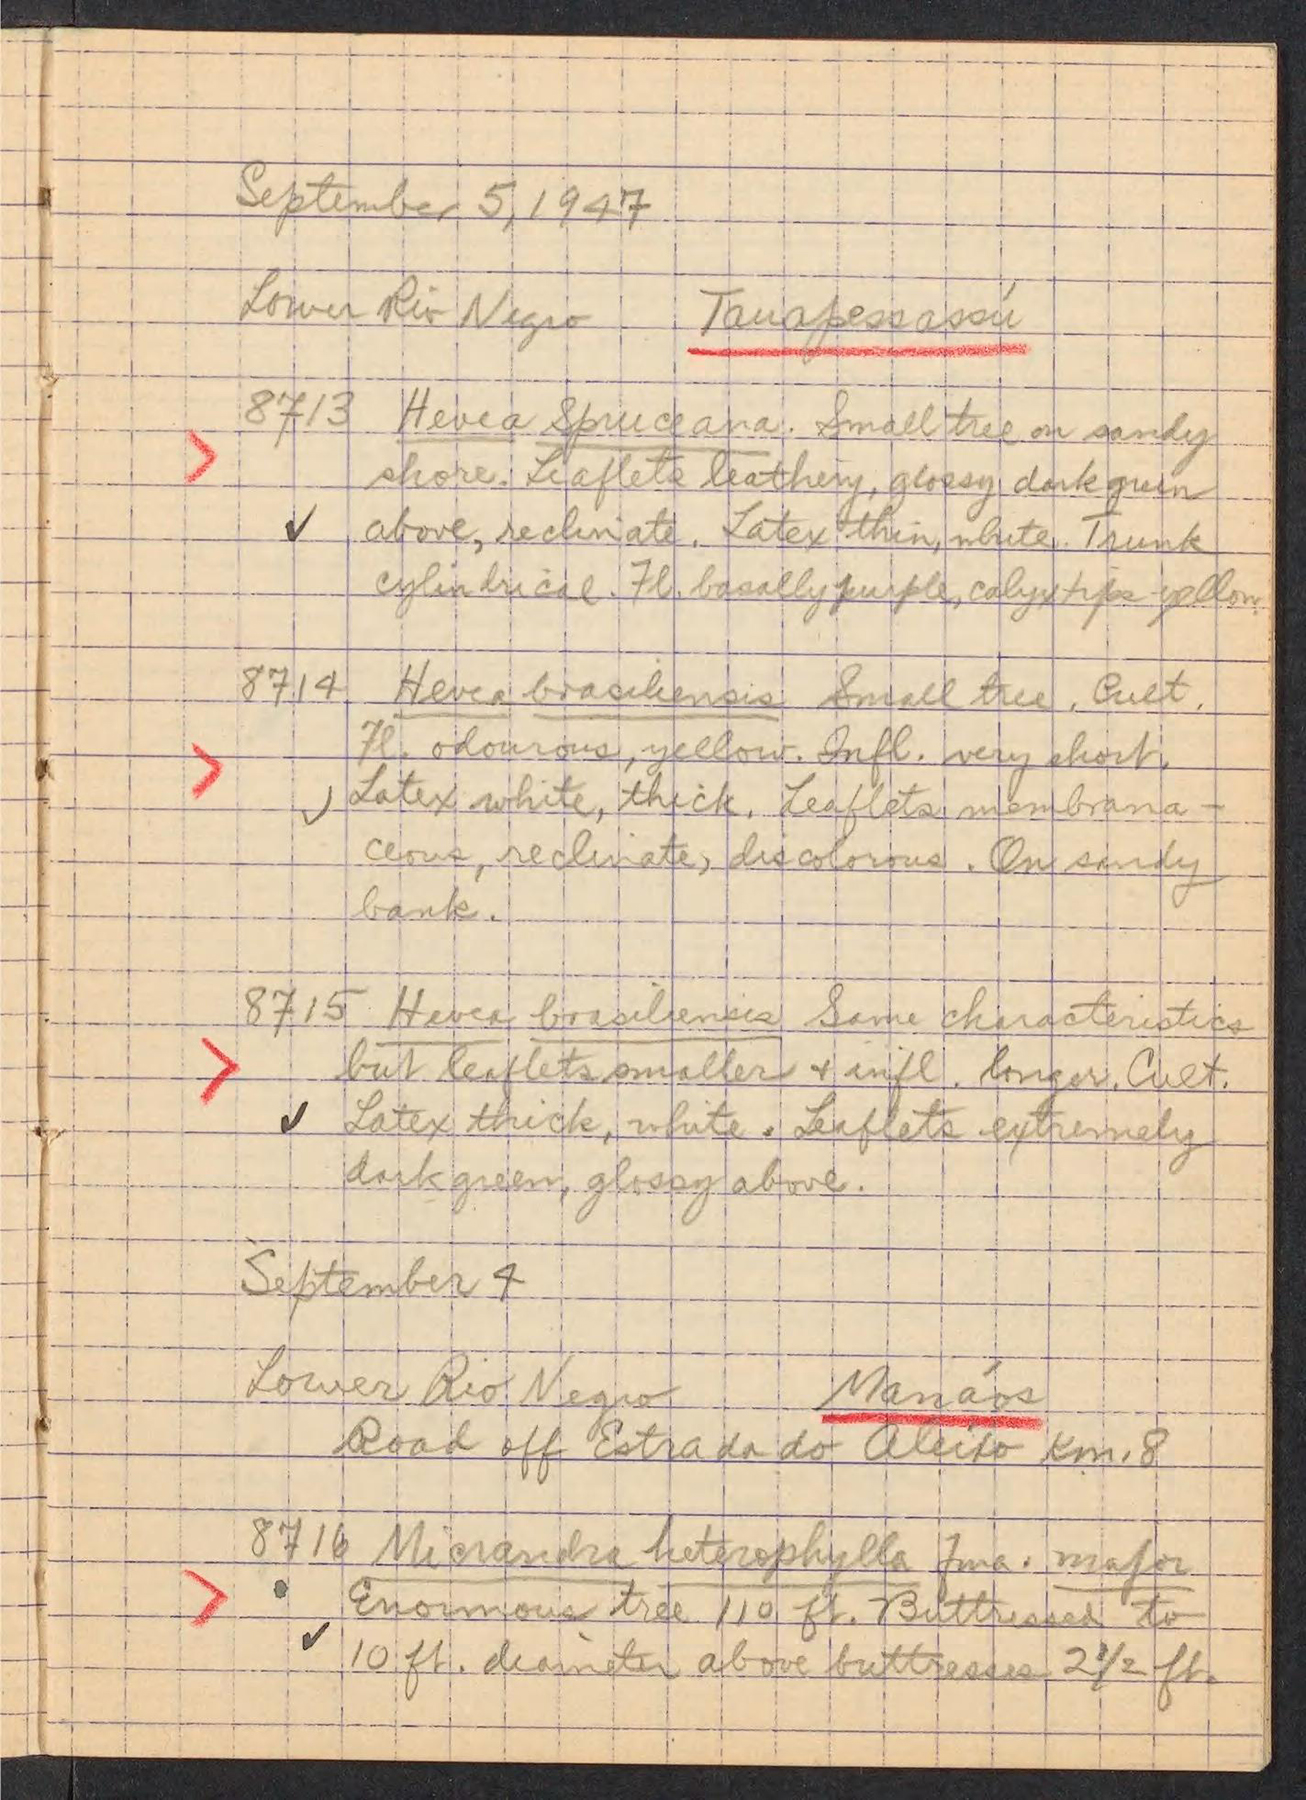 September 5, 1947
Lower Rio Negro Tauapessassú
8713 Hevea Spruceana. Small tree on sandy
shore. Leaflets leathery, glossy dark green
above, reclinate. Latex thin, white. Trunk
cylindrical. Fl. basally purple, calyx tips yellow.
8714 Hevea brasiliensis Small tree. Cult.
Fl. odourous, yellow. Infl. very short.
Latex white, thick. Leaflets membrana-
ceous, reclinate, discolorous. On sandy
bank.
8715 Hevea brasiliensis Same characteristics
but leaflets smaller & infl. longer. Cult.
Latex thick, white. Leaflets extremely
dark green, glossy above.
September 4
Lower Rio Negro Manáos
Road off Estrada do Aleixo Km. 8
8716 Micrandra heterophylla major
Enormous tree 110 ft. Buttressed to
10 ft. diameter above buttresses 2 1/2 ft.